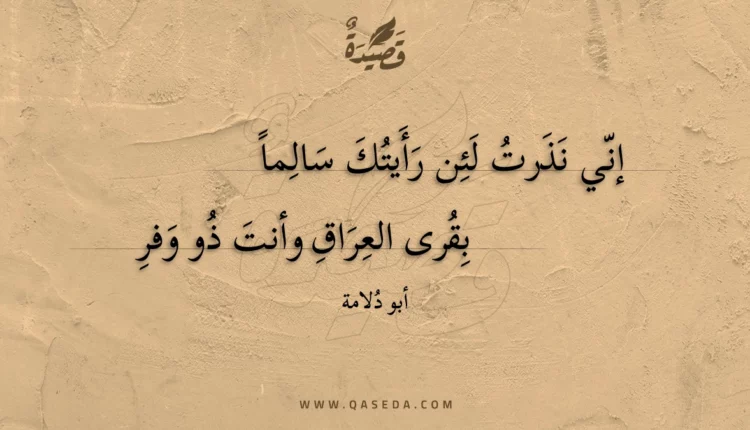 قَصِيْدَةٌ
إنّي نَذَرتُ لَئِن رَأَيتُكَ سَالِماً
بِقُرى العِرَاقِ وأنتَ ذُو وَفرِ
أبو دُلامة
WWW.QASEDA.COM